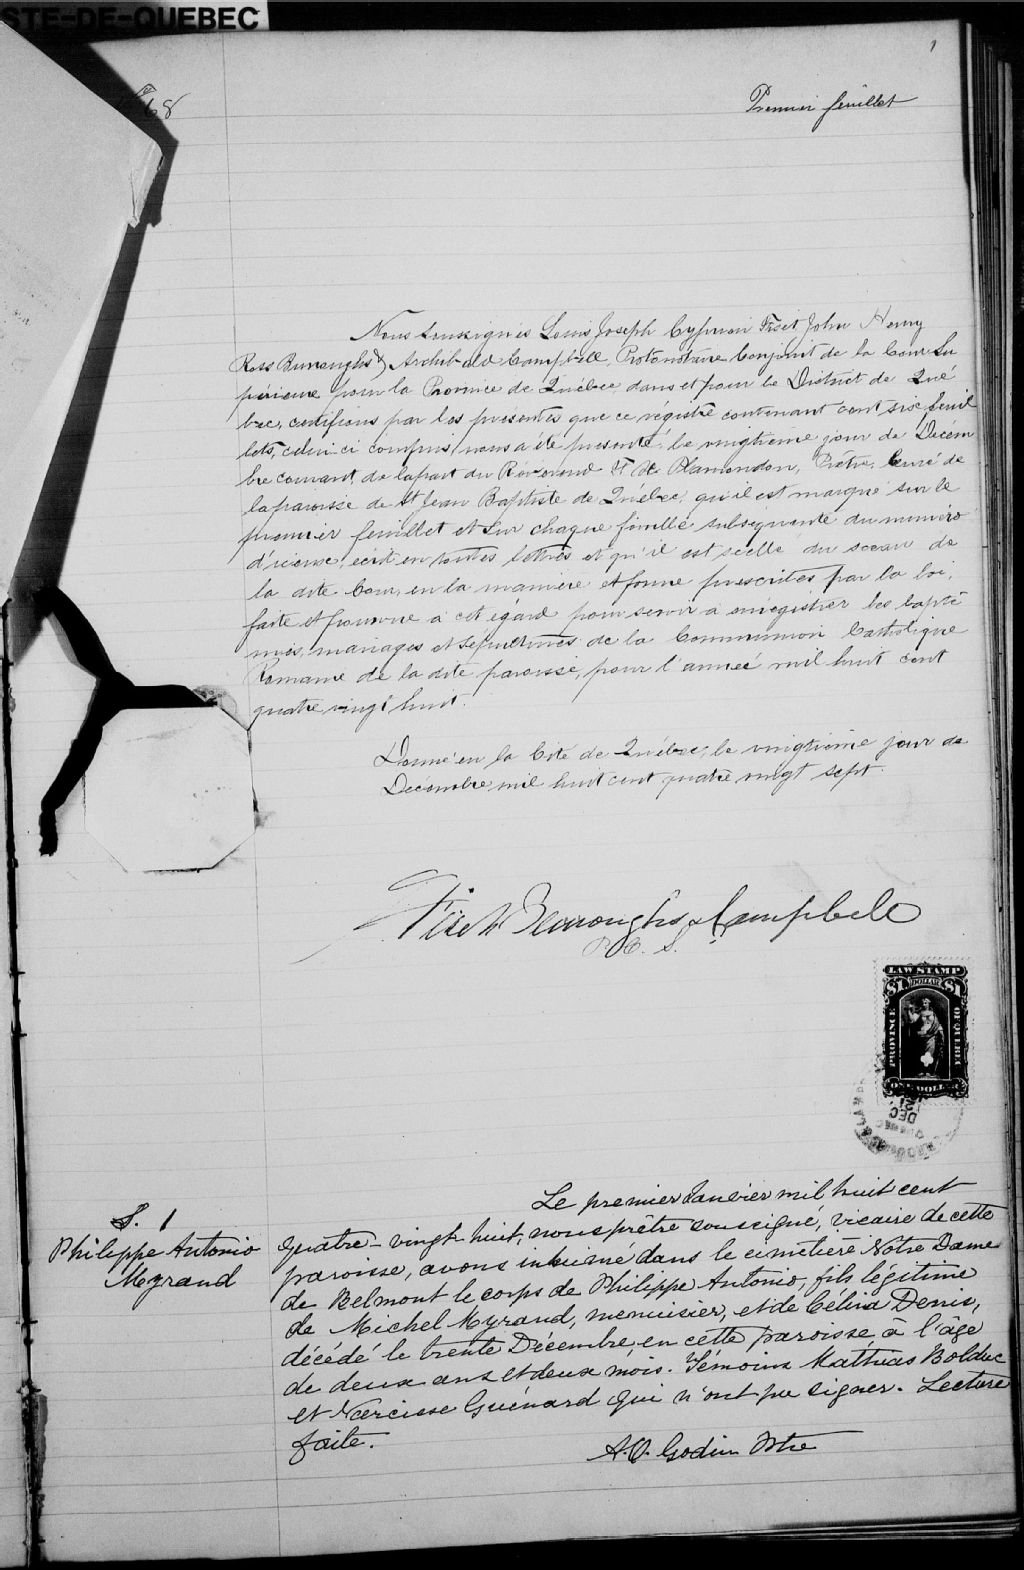 STE-DE-QUEBEC
1
68
Premier feuillet
Nous soussignés Louis Joseph Cyprien Fiset John Henry
Ross Burroughs & Archibald Campbell Protonotaire Conjoint de la Cour Su
périeure pour la Province de Québec dans et pour le District de Qué
bec, certifions par les presentes que ce régistre contenant cent six feuil
lets, celui-ci compris, nous a été presenté, le vingtième jour de Décem
bre courant, de la part du Révérend F. H. Plamondon, Prêtre, Curé de
la paroisse de St Jean Baptiste de Québec, qu'il est marqué sur le
premier feuillet et sur chaque feuille subséquente du numéro
d'icelui, écrit en toutes lettres et qu'il est scellé du sceau de
la dite Cour, en la manière et forme prescrites par la loi,
faite et pourvue à cet égard pour servir à enregistrer les baptê
mes, mariages et sépultures de la Communion Catholique
Romaine de la dite paroisse, pour l'année mil huit cent
quatre vingt huit.
Donné en la Cité de Québec, le vingtième jour de
Décembre mil huit cent quatre vingt sept.
Fiset Burroughs & Campbell
P. C. S.
LAW STAMP
$1 DOLLAR $1
PROVINCE
OF QUEBEC
ONE DOLLAR
DEC
21
QUEBEC
Le premier Janvier mil huit cent
S. 1
Philippe Antonio
Myrand
quatre-vingt-huit, nous prêtre soussigné, vicaire de cette
paroisse, avons inhumé dans le cimetière Notre Dame
de Belmont le corps de Philippe Antonio, fils légitime
de Michel Myrand, menuisier, et de Célina Denis,
décédé le trente Décembre, en cette paroisse à l'âge
de deux ans et deux mois. Témoins Mathias Bolduc
et Narcisse Guénard qui n'ont pu signer. Lecture
faite.
A. O. Godin Ptre